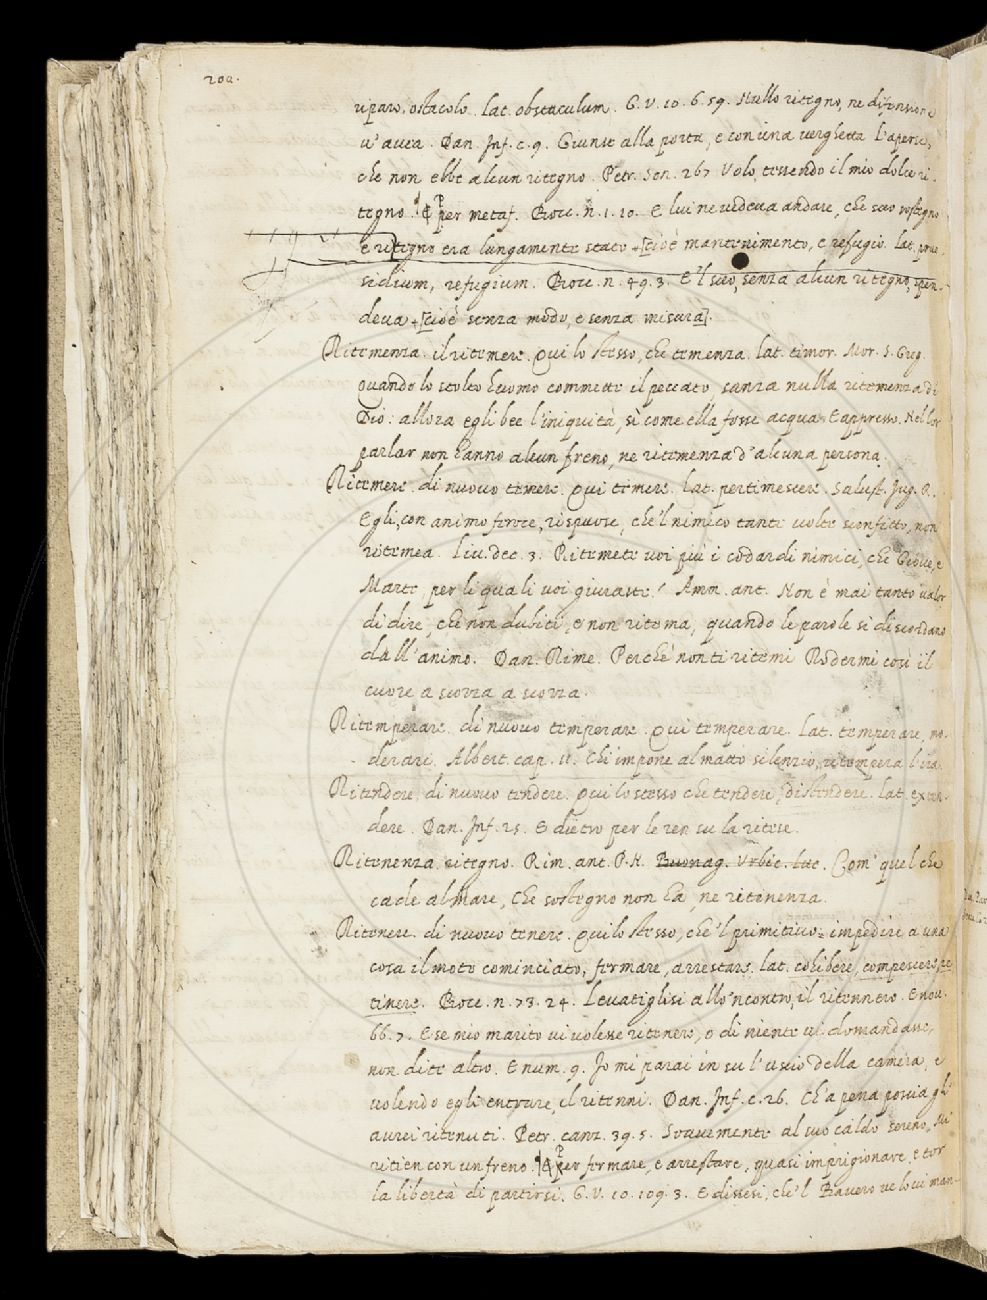 200.
riparo, ostacolo. Lat. obstaculum. G. V. 10. 6. 59. Nullo ritegno, ne difensione
v'avea. Dan. Inf. c. 9. Giunse alla porta, e con una verghetta L'aperse,
che non ebbe alcun ritegno. Petr. Son. 267 Volo, tessendo il mio dolce ri-
tegno. ¶ per metaf. Bocc. n. 1. 10. E lui ne vedeva andare, che suo sostegno
e ritegno era lungamente stato +[cioè mantenimento, e refugio. Lat. prae-
sidium, refugium. Bocc. n. 49. 3. E'l suo, senza alcun ritegno, spen-
deva +[cioè senza modo, e senza misura].
Ritemenza. il ritemere. Qui lo stesso, che temenza. Lat. timor. Mor. S. Greg.
Quando lo stolto huomo commette il peccato, sanza nulla ritemenza di
Dio: allora egli bee l'iniquità, sì come ella fosse acqua. E appresso. Nel lor
parlar non hanno alcun freno, ne ritemenza d'alcuna persona.
Ritemere. di nuovo temere. Qui temere. Lat. pertimescere. Salust. Jug. R.
Egli, con animo feroce, rispuose, che'l nimico tante volte sconfitto, non
ritemea. Liv. dec. 3. Ritemete voi più i codardi nimici, che Giove, e
Marte, per li quali voi giuraste? Amm. ant. Non è mai tanto valor
di dire, che non dubiti, e non ritema, quando le parole si discordano
dall'animo. Dan. Rime. Perchè non ti ritemi Rodermi così il
cuore a scorza a scorza.
Ritemperare. di nuovo temperare. Qui temperare. Lat. temperare, mo-
derari. Albert. cap. 11. Chi impone al matto silenzio, ritempera l'ira.
Ritendere. di nuovo tendere. Qui lo stesso che tendere, distendere. Lat. exten-
dere. Dan. Inf. 25. E dietro per le ren su la ritese.
Ritenenza. ritegno. Rim. ant. P. N. Buonag. Urbic. Luc. Com' quel che
cade al mare, Che sostegno non ha, ne ritenenza.
Ritenere. di nuovo tenere. Qui lo stesso, che'l primitivo. impedire a una
cosa il moto cominciato, fermare, arrestare. Lat. cohibere, compescere, re-
tinere. Bocc. n. 73. 24. Levatiglisi allo'ncontro, il ritennero. E nov.
66. 7. E se mio marito vi volesse ritenere, o di niente vi domandasse,
non dite altro. E num. 9. Io mi parai in su l'uscio della camera, e
volendo egli entrare, il ritenni. Dan. Inf. c. 26. Ch'a pena poscia gli
avrei ritenuti. Petr. canz. 39. 5. Soavemente al suo caldo sereno, Mi
ritien con un freno. ¶ per fermare, e arrestare, quasi imprigionare, e tor
la libertà di partirsi. G. V. 10. 109. 3. E dissesi, che'l Bavero ve lo vi man-